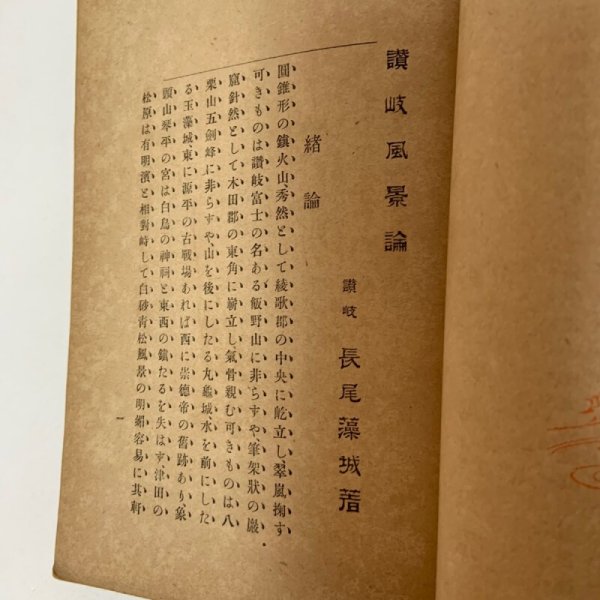 讃岐風景論
讃岐 長尾藻城著
緒論
圓錐形の鎮火山、秀然として綾歌郡の中央に屹立し、翠嵐掬す
可きものは讃岐富士の名ある飯野山に非らずや、筆架狀の巖
窟針然として木田郡の東角に嶄立し、氣骨親む可きものは八
栗山五劍峰に非らすや、山を後にしたる丸龜城、水を前にした
る玉藻城、東に源平の古戰場あれば西に崇德帝の舊跡あり、象
頭山琴平の宮は白鳥の神祠と東西の鎭たるを失はす、津田の
松原は有明濱と相對峙して白砂靑松風景の明媚容易に其軒